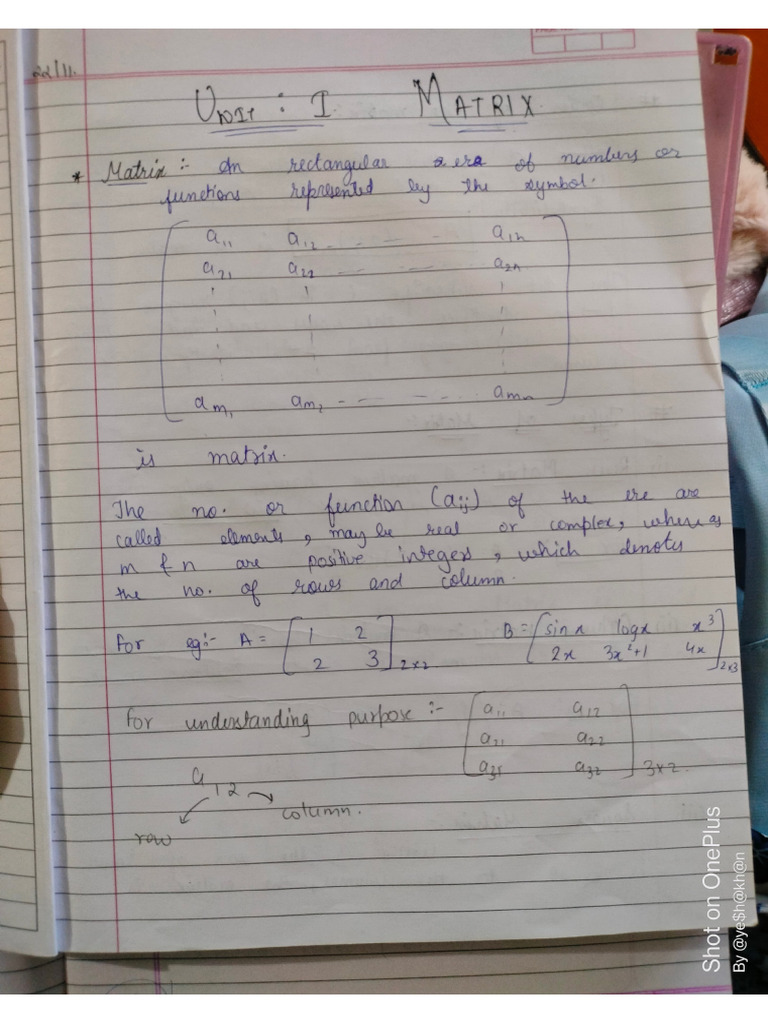 22/11.
UNIT : I MATRIX
* Matrix :- An rectangular era of numbers or
functions represented by the symbol.
a11 a12 - - - - a1n
a21 a22 - - - - a2n
am1 am2 - - - - - amn
is matrix.
The no. or function (aij) of the ere are
called elements, may be real or complex, where as
m & n are positive integers, which denots
the no. of rows and column.
For eg:- A = [1 2 B = [sin x log x x³
2 3]2×2 2x 3x²+1 4x]2×3
For understanding purpose :- [a11 a12
a21 a22
a31 a32]3×2.
a12
column.
row
Shot on OnePlus
By @ye$h@kh@n